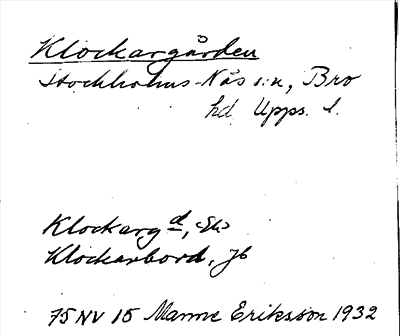 Klockargården
Stockholms-Näs s:n, Bro
hd Upps. l.
Klockargd, Ek
Klockarbord, Jb
75 NV 15 Manne Eriksson 1932